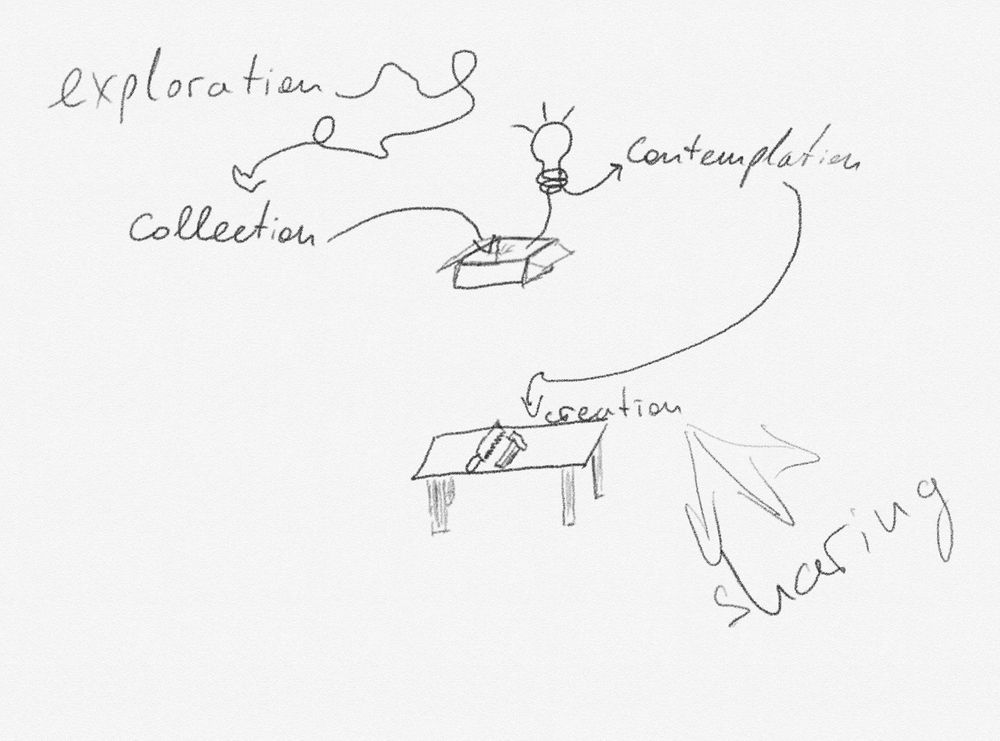 exploration
collection
contemplation
creation
sharing